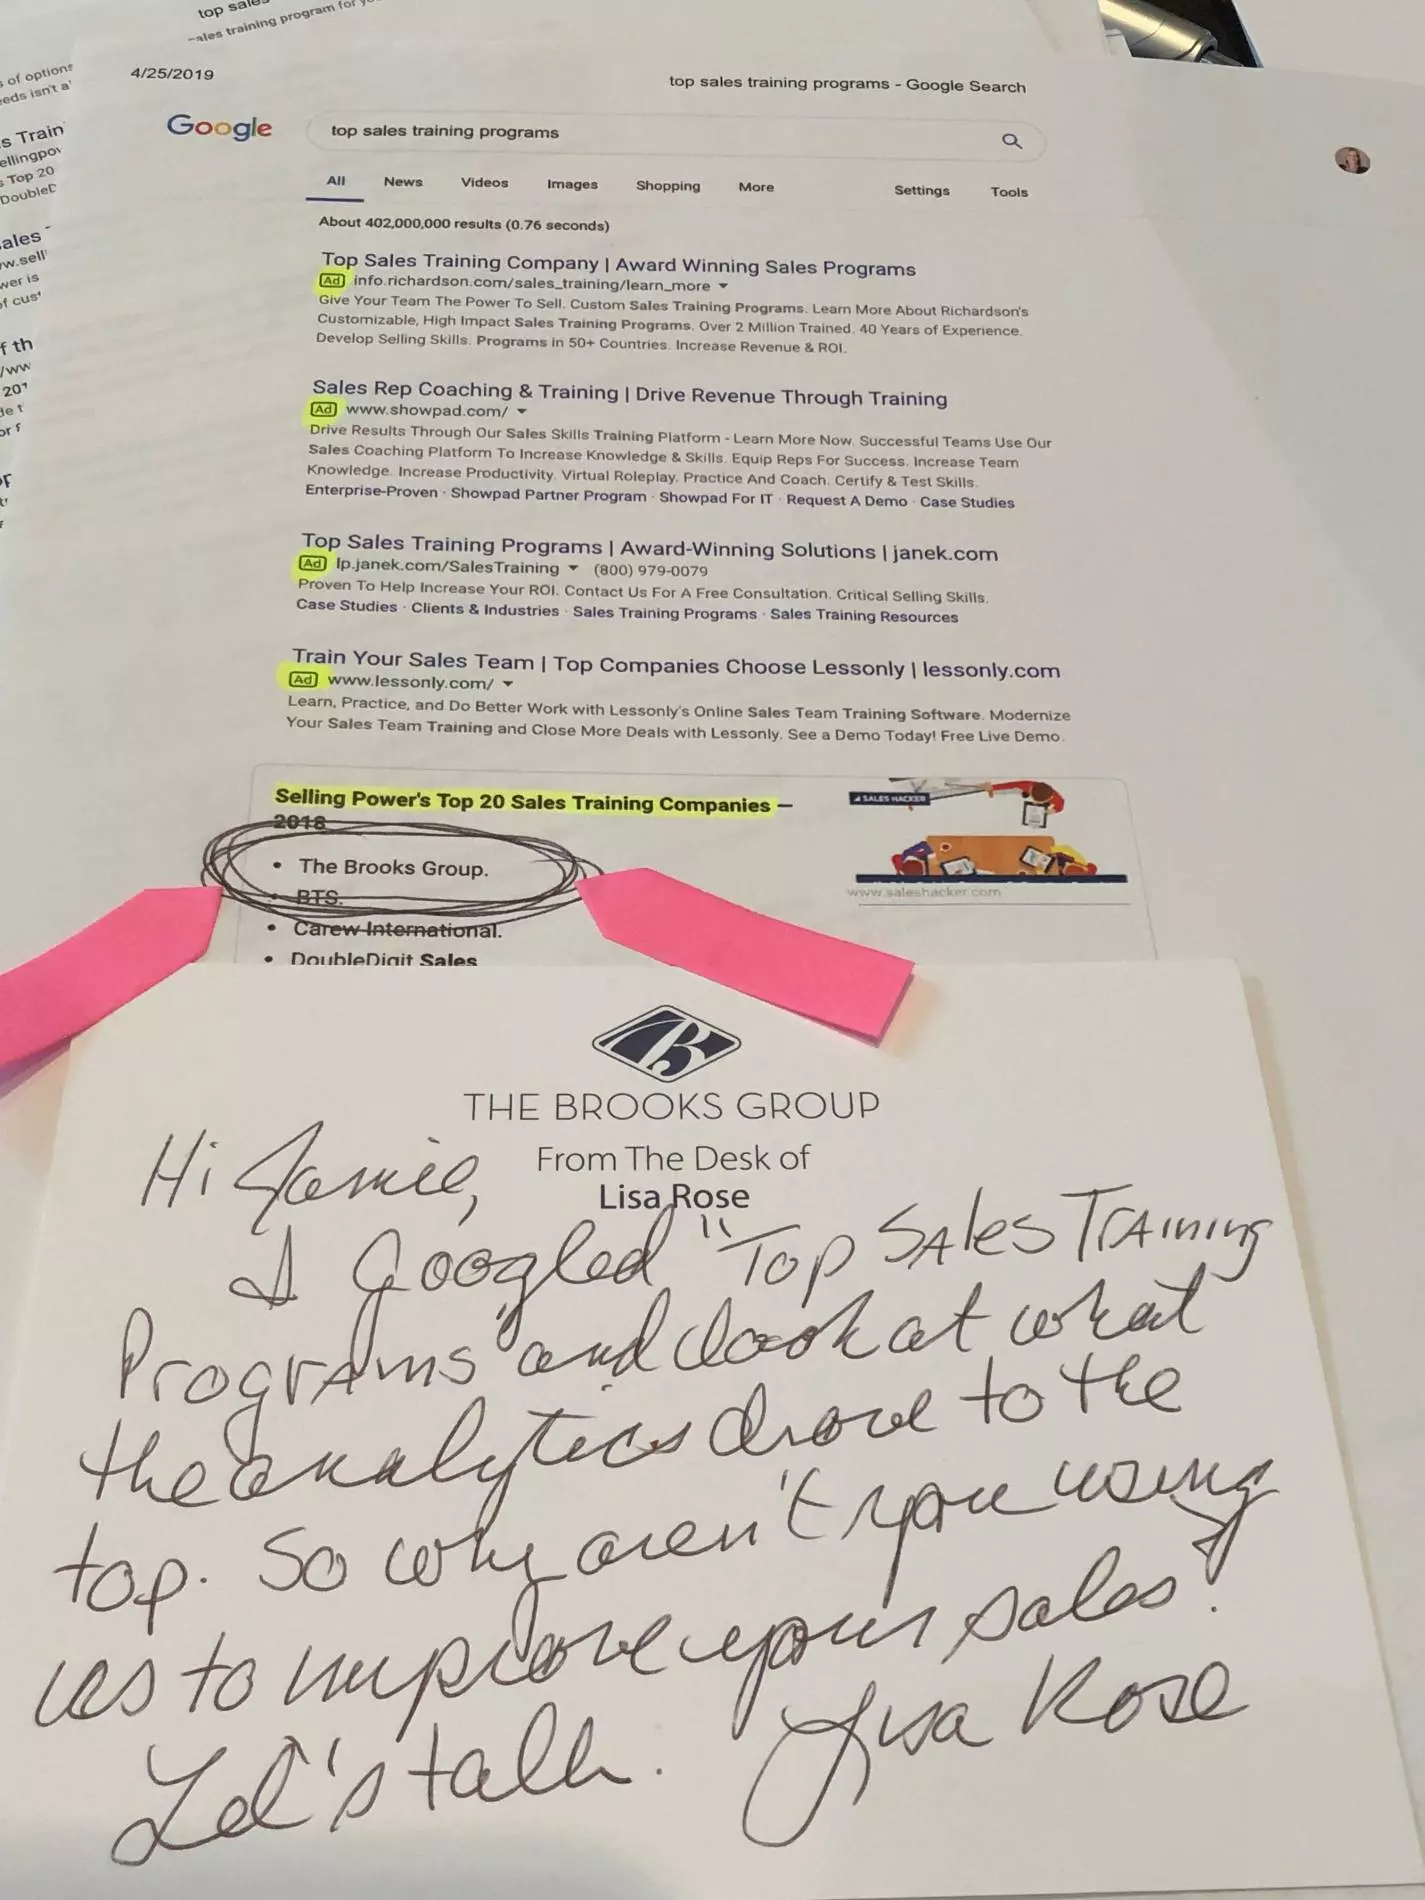 top sales
sales training program for
s of options
eeds isn't a
s Train
ellingpow
Top 20
DoubleD
ales
w.sell
wer is
of cus
f th
/ww
201
de t
or f
4/25/2019
top sales training programs - Google Search
Google
top sales training programs
All News Videos Images Shopping More Settings Tools
About 402,000,000 results (0.76 seconds)
Top Sales Training Company | Award Winning Sales Programs
Ad info.richardson.com/sales_training/learn_more
Give Your Team The Power To Sell. Custom Sales Training Programs. Learn More About Richardson's
Customizable, High Impact Sales Training Programs. Over 2 Million Trained. 40 Years of Experience.
Develop Selling Skills. Programs in 50+ Countries. Increase Revenue & ROI.
Sales Rep Coaching & Training | Drive Revenue Through Training
Ad www.showpad.com/
Drive Results Through Our Sales Skills Training Platform - Learn More Now. Successful Teams Use Our
Sales Coaching Platform To Increase Knowledge & Skills. Equip Reps For Success. Increase Team
Knowledge. Increase Productivity. Virtual Roleplay. Practice And Coach. Certify & Test Skills.
Enterprise-Proven · Showpad Partner Program · Showpad For IT · Request A Demo · Case Studies
Top Sales Training Programs | Award-Winning Solutions | janek.com
Ad lp.janek.com/SalesTraining (800) 979-0079
Proven To Help Increase Your ROI. Contact Us For A Free Consultation. Critical Selling Skills.
Case Studies · Clients & Industries · Sales Training Programs · Sales Training Resources
Train Your Sales Team | Top Companies Choose Lessonly | lessonly.com
Ad www.lessonly.com/
Learn, Practice, and Do Better Work with Lessonly's Online Sales Team Training Software. Modernize
Your Sales Team Training and Close More Deals with Lessonly. See a Demo Today! Free Live Demo.
Selling Power's Top 20 Sales Training Companies –
2018
• The Brooks Group.
• BTS.
• Carew International.
• DoubleDigit Sales
SALES HACKER
www.saleshacker.com
THE BROOKS GROUP
From The Desk of
Lisa Rose
Hi Jamie,
I Googled "Top Sales Training
Programs" and look at what
the analytics drove to the
top. So why aren't you using
us to improve your sales?
Let's talk. Lisa Rose